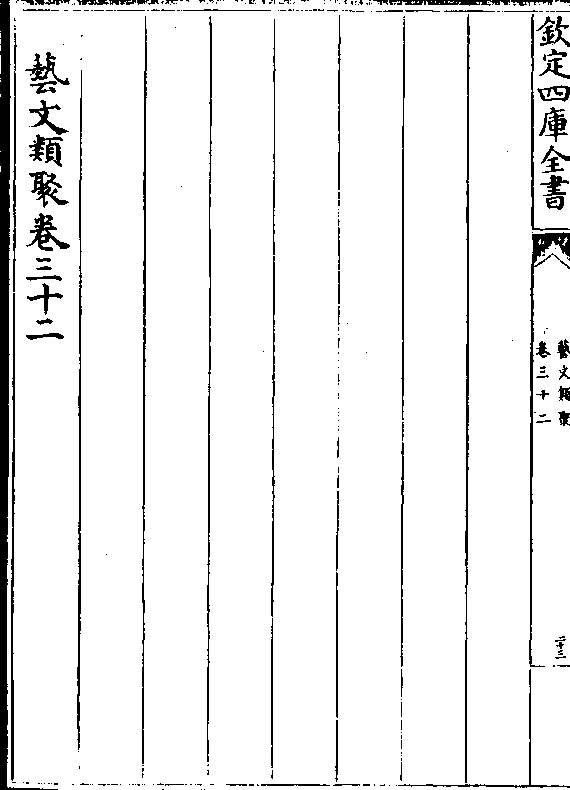 欽定四庫全書
藝文類聚
卷三十二
二十三
藝文類聚卷三十二